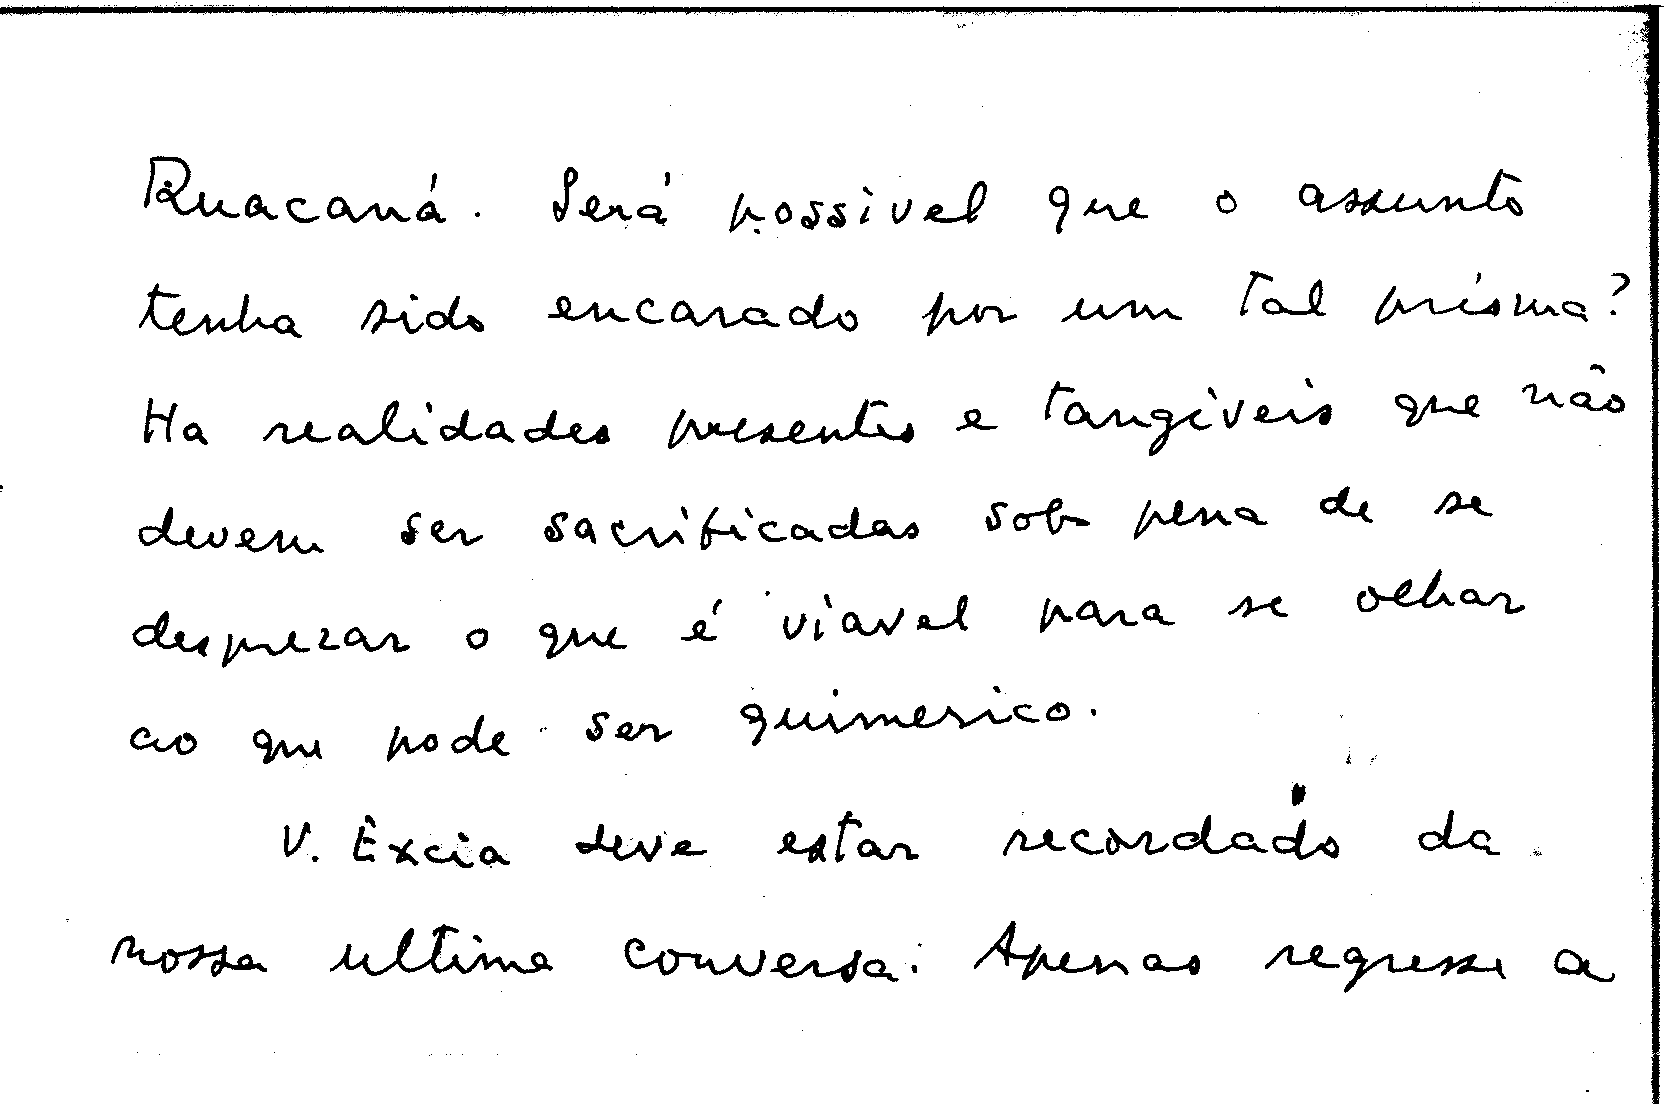 Ruacaná. Será possivel que o assunto
tenha sido encarado por um tal prisma?
Ha realidades presentes e tangiveis que não
devem ser sacrificadas sob pena de se
desprezar o que é viavel para se olhar
ao que pode ser quimerico.
V. Êxcia deve estar recordado da
nossa ultima conversa. Apenas regresse a